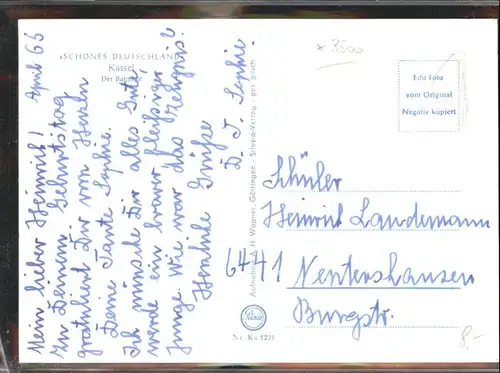 »SCHÖNES DEUTSCHLAND«
Kassel
Der Bahnhof
April 65
Mein lieber Heinrich!
Zu Deinem Geburtstag
gratuliert Dir von Herzen
Deine Tante Sophie.
Ich wünsche Dir alles Gute,
werde ein braver fleißiger
Junge. Wie war das Zeugnis?
Herzliche Grüße
D. T. Sophie.
× 3500
Echt Foto
vom Original
Negativ kopiert
Schüler
Heinrich Landemann
6441 Nentershausen
Burgstr.
Aufnahme: H. Wagner, Göttingen - Schöning-Verlag - ges. gesch.
Nr. Ks 1221
8,-